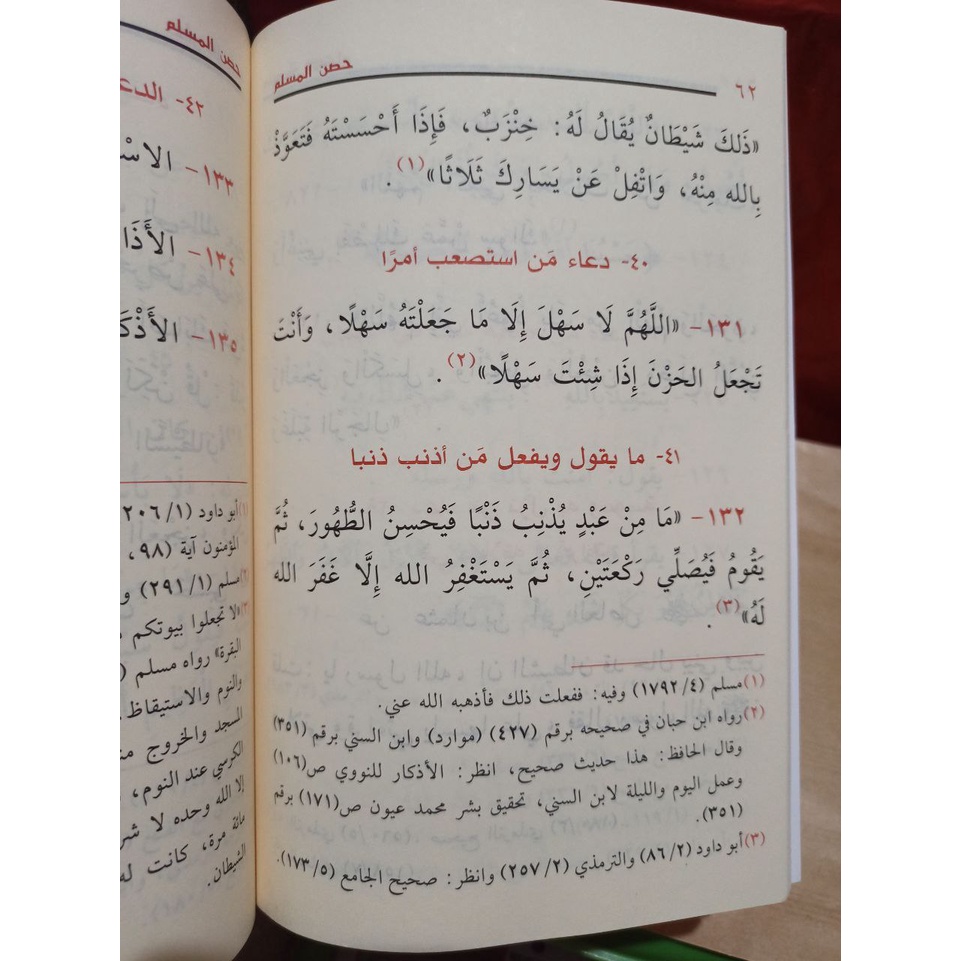 حصن المسلم
٦٢
«ذَلكَ شَيْطَانٌ يُقَالُ لَهُ: خِنْزَبٌ، فَإِذَا أَحْسَسْتَهُ فَتَعَوَّذْ
بِالله مِنْهُ، وَاتْفِلْ عَنْ يَسَارِكَ ثَلَاثًا»(١).
٤٠- دعاء مَن استصعب أمرًا
١٣١- «اللَّهُمَّ لَا سَهْلَ إِلَا مَا جَعَلْتَهُ سَهْلًا، وَأَنْتَ
تَجْعَلُ الحَزْنَ إِذَا شِئْتَ سَهْلًا»(٢).
٤١- ما يقول ويفعل مَن أذنب ذنبا
١٣٢- «مَا مِنْ عَبْدٍ يُذْنِبُ ذَنْبًا فَيُحْسِنُ الطُّهُورَ، ثُمَّ
يَقُومُ فَيُصَلِّي رَكْعَتَيْنِ، ثُمَّ يَسْتَغْفِرُ الله إِلَّا غَفَرَ الله
لَهُ»(٣).
(١) مسلم (٤/ ١٧٩٢) وفيه: ففعلت ذلك فأذهبه الله عني.
(٢) رواه ابن حبان في صحيحه برقم (٤٢٧) (موارد) وابن السني برقم (٣٥١)
وقال الحافظ: هذا حديث صحيح، انظر: الأذكار للنووي ص(١٠٦)
وعمل اليوم والليلة لابن السني، تحقيق بشر محمد عيون ص(١٧١) برقم
(٣٥١).
(٣) أبو داود (٢/ ٨٦) والترمذي (٢/ ٢٥٧) وانظر: صحيح الجامع (٥/ ١٧٣).
حصن المسلم
٤٢-
١٣٣-
١٣٤-
١٣٥-
(١) أبو داود (١/ ٢٠٦
المؤمنون آية (٩٨،
(٢) مسلم (١/ ٢٩١)
(٣) «لا تجعلوا بيوتكم
البقرة» رواه مسلم
والنوم والاستيقاظ.
المسجد والخروج
الكرسي عند النوم،
إلا الله وحده لا
مائة مرة، كانت
الشيطان.